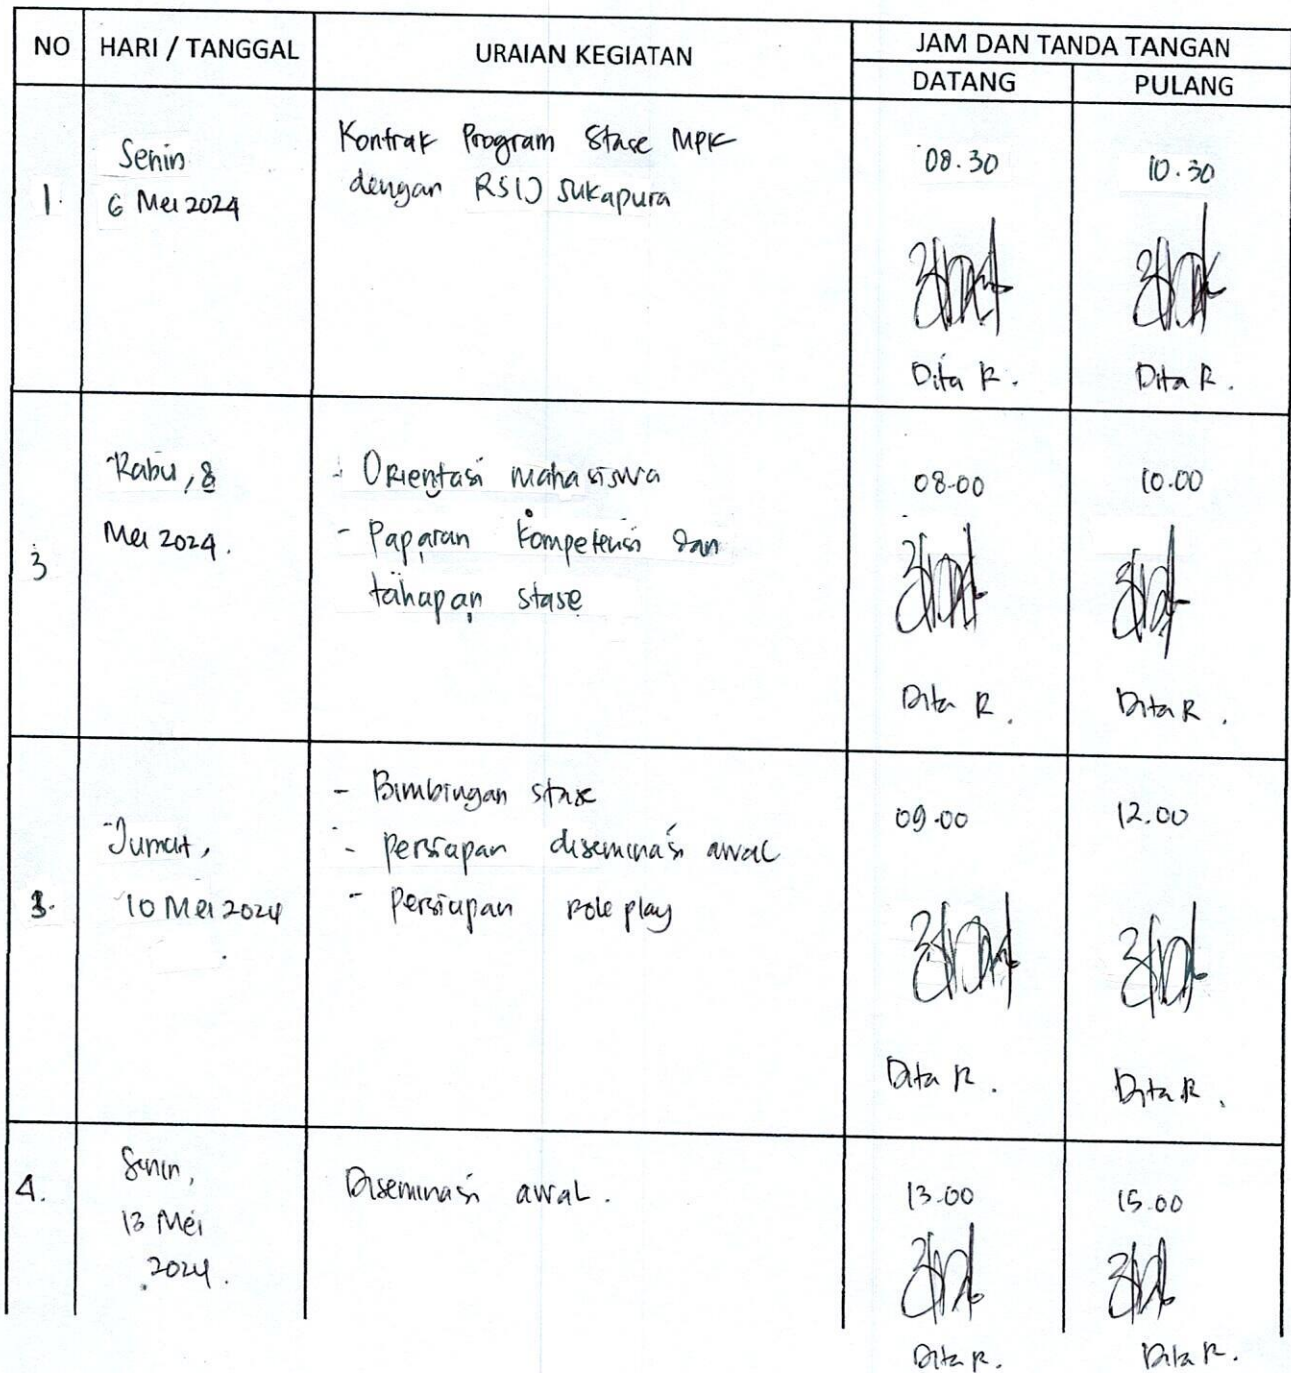 NO HARI / TANGGAL URAIAN KEGIATAN JAM DAN TANDA TANGAN
DATANG PULANG
1. Senin
6 Mei 2024
Kontrak Program Stase MPK
dengan RSIJ Sukapura
08.30 10.30
Dita R. Dita R.
3 Rabu, 8
Mei 2024.
- Orientasi mahasiswa
- Paparan Kompetensi dan
tahapan stase
08.00 10.00
Dita R. Dita R.
3. Jumat,
10 Mei 2024
- Bimbingan stase
- persiapan diseminasi awal
- Persiapan role play
09.00 12.00
Dita R. Dita R.
4. Senin,
13 Mei
2024.
Diseminasi awal.
13.00 15.00
Dita R. Dita R.